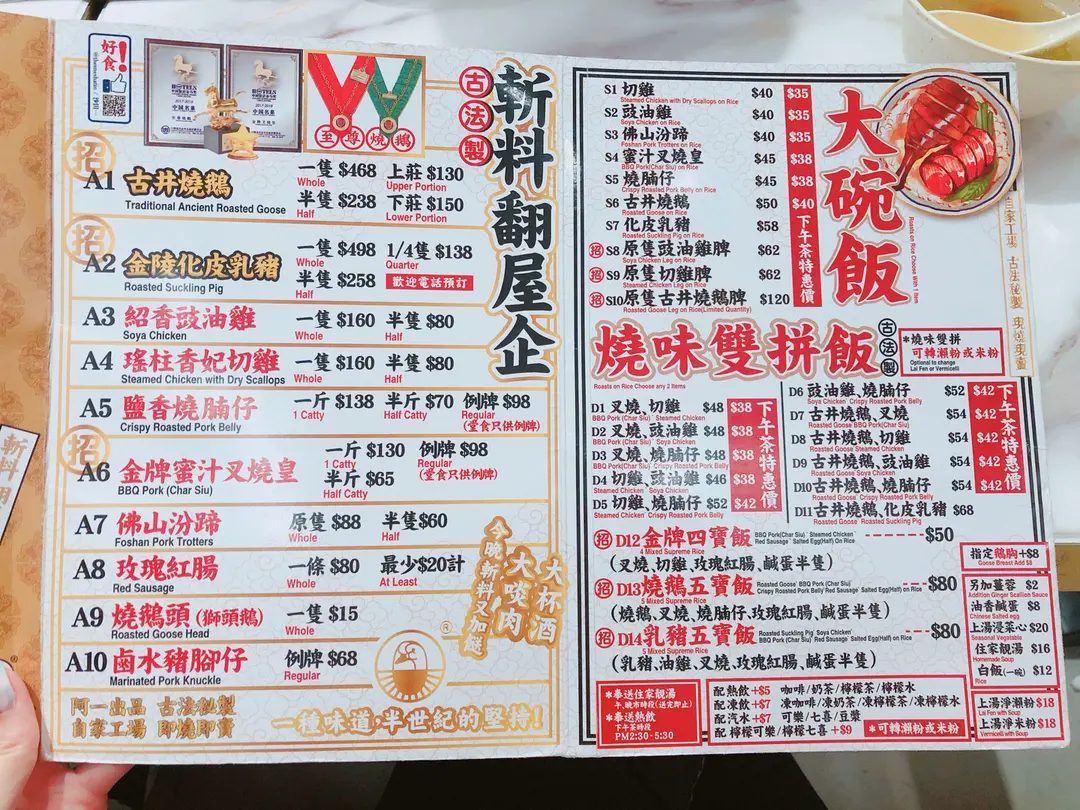 好食!
HOTELS
2017-2018
中国名酒
HOTELS
2017-2018
至尊燒鵝
古法製
斬料翻屋企
招
A1 古井燒鵝
Traditional Ancient Roasted Goose
一隻 $468 上莊 $130
Whole Upper Portion
半隻 $238 下莊 $150
Half Lower Portion
招
A2 金陵化皮乳豬
Roasted Suckling Pig
一隻 $498 1/4隻 $138
Whole Quarter
半隻 $258 歡迎電話預訂
Half
A3 紹香豉油雞 一隻 $160 半隻 $80
Soya Chicken Whole Half
A4 瑤柱香妃切雞 一隻 $160 半隻 $80
Steamed Chicken with Dry Scallops Whole Half
A5 鹽香燒腩仔 一斤 $138 半斤 $70 例牌 $98
Crispy Roasted Pork Belly 1 Catty Half Catty Regular
(堂食只供例牌)
招
A6 金牌蜜汁叉燒皇
BBQ Pork (Char Siu)
一斤 $130 例牌 $98
1 Catty Regular
半斤 $65 (堂食只供例牌)
Half Catty
A7 佛山汾蹄 原隻 $88 半隻$60
Foshan Pork Trotters Whole Half
A8 玫瑰紅腸 一條 $80 最少$20計
Red Sausage Whole At Least
A9 燒鵝頭 (獅頭鵝) 一隻 $15
Roasted Goose Head Whole
A10 鹵水豬腳仔 例牌 $68
Marinated Pork Knuckle Regular
今晚斬料又加餸
大啖肉
大杯酒
®
阿一出品 古法秘製
自家工場 即燒即賣
一種味道,半世紀的堅持!
大碗飯
Roasts on Rice Choose With 1 Item
S1 切雞 $40 $35
Steamed Chicken with Dry Scallops on Rice
S2 豉油雞 $40 $35
Soya Chicken on Rice
S3 佛山汾蹄 $40 $35
Foshan Pork Trotters on Rice
S4 蜜汁叉燒皇 $45 $38
BBQ Pork (Char Siu) on Rice
S5 燒腩仔 $45 $38
Crispy Roasted Pork Belly on Rice
S6 古井燒鵝 $50 $40
Roasted Goose on Rice
S7 化皮乳豬 $58
Roasted Suckling Pig on Rice
招 S8 原隻豉油雞髀 $62
Soya Chicken Leg on Rice
招 S9 原隻切雞髀 $62
Steamed Chicken Leg on Rice
招 S10 原隻古井燒鵝髀 $120
Roasted Goose Leg on Rice(Limited Quantity)
下午茶特惠價
自家工場 古法秘製 現燒現賣
燒味雙拼飯
古法製
Roasts on Rice Choose any 2 Items
*燒味雙拼
可轉瀨粉或米粉
Optional to change
Lai Fen or Vermicelli
D1 叉燒、切雞 $48 $38
BBQ Pork(Char Siu) Steamed Chicken
D2 叉燒、豉油雞 $48 $38
BBQ Pork(Char Siu) Soya Chicken
D3 叉燒、燒腩仔 $48 $38
BBQ Pork(Char Siu) Crispy Roasted Pork Belly
D4 切雞、豉油雞 $46 $38
Steamed Chicken Soya Chicken
D5 切雞、燒腩仔 $52 $42
Steamed Chicken Crispy Roasted Pork Belly
下午茶特惠價
D6 豉油雞、燒腩仔 $52 $42
Soya Chicken Crispy Roasted Pork Belly
D7 古井燒鵝、叉燒 $54 $42
Roasted Goose BBQ Pork(Char Siu)
D8 古井燒鵝、切雞 $54 $42
Roasted Goose Steamed Chicken
D9 古井燒鵝、豉油雞 $54 $42
Roasted Goose Soya Chicken
D10 古井燒鵝、燒腩仔 $54 $42
Roasted Goose Crispy Roasted Pork Belly
D11 古井燒鵝、化皮乳豬 $68
Roasted Goose Roasted Suckling Pig
下午茶特惠價
招 D12 金牌四寶飯 BBQ Pork(Char Siu) Steamed Chicken $50
4 Mixed Supreme Rice Red Sausage Salted Egg(Half) on Rice
(叉燒、切雞、玫瑰紅腸、鹹蛋半隻)
招 D13 燒鵝五寶飯 Roasted Goose BBQ Pork (Char Siu) $80
5 Mixed Supreme Rice Crispy Roasted Pork Belly Red Sausage Salted Egg(Half) on Rice
(燒鵝、叉燒、燒腩仔、玫瑰紅腸、鹹蛋半隻)
招 D14 乳豬五寶飯 Roasted Suckling Pig Soya Chicken $80
5 Mixed Supreme Rice BBQ Pork(Char Siu) Red Sausage Salted Egg(Half) on Rice
(乳豬、油雞、叉燒、玫瑰紅腸、鹹蛋半隻)
指定鵝胸+$8
Goose Breast Add $8
另加薑蓉 $2
Addition Ginger Scallion Sauce
油香鹹蛋 $8
Chinese Salted egg
上湯浸菜心 $20
Seasonal Vegetable
住家靚湯 $16
Homemade Soup
白飯(一碗) $12
Rice
上湯淨瀨粉 $18
Lai Fen with Soup
上湯淨米粉 $18
Vermicelli with Soup
*奉送住家靚湯
午、晚市時段(送完即止)
*奉送熱飲
下午茶時段
PM2:30-5:30
配熱飲 +$5 咖啡/奶茶/檸檬茶/檸檬水
配凍飲 +$7 凍咖啡/凍奶茶/凍檸檬茶/凍檸檬水
配汽水 +$7 可樂/七喜/豆漿
配 檸檬可樂/檸檬七喜 +$9 *可轉瀨粉或米粉
斬料翻